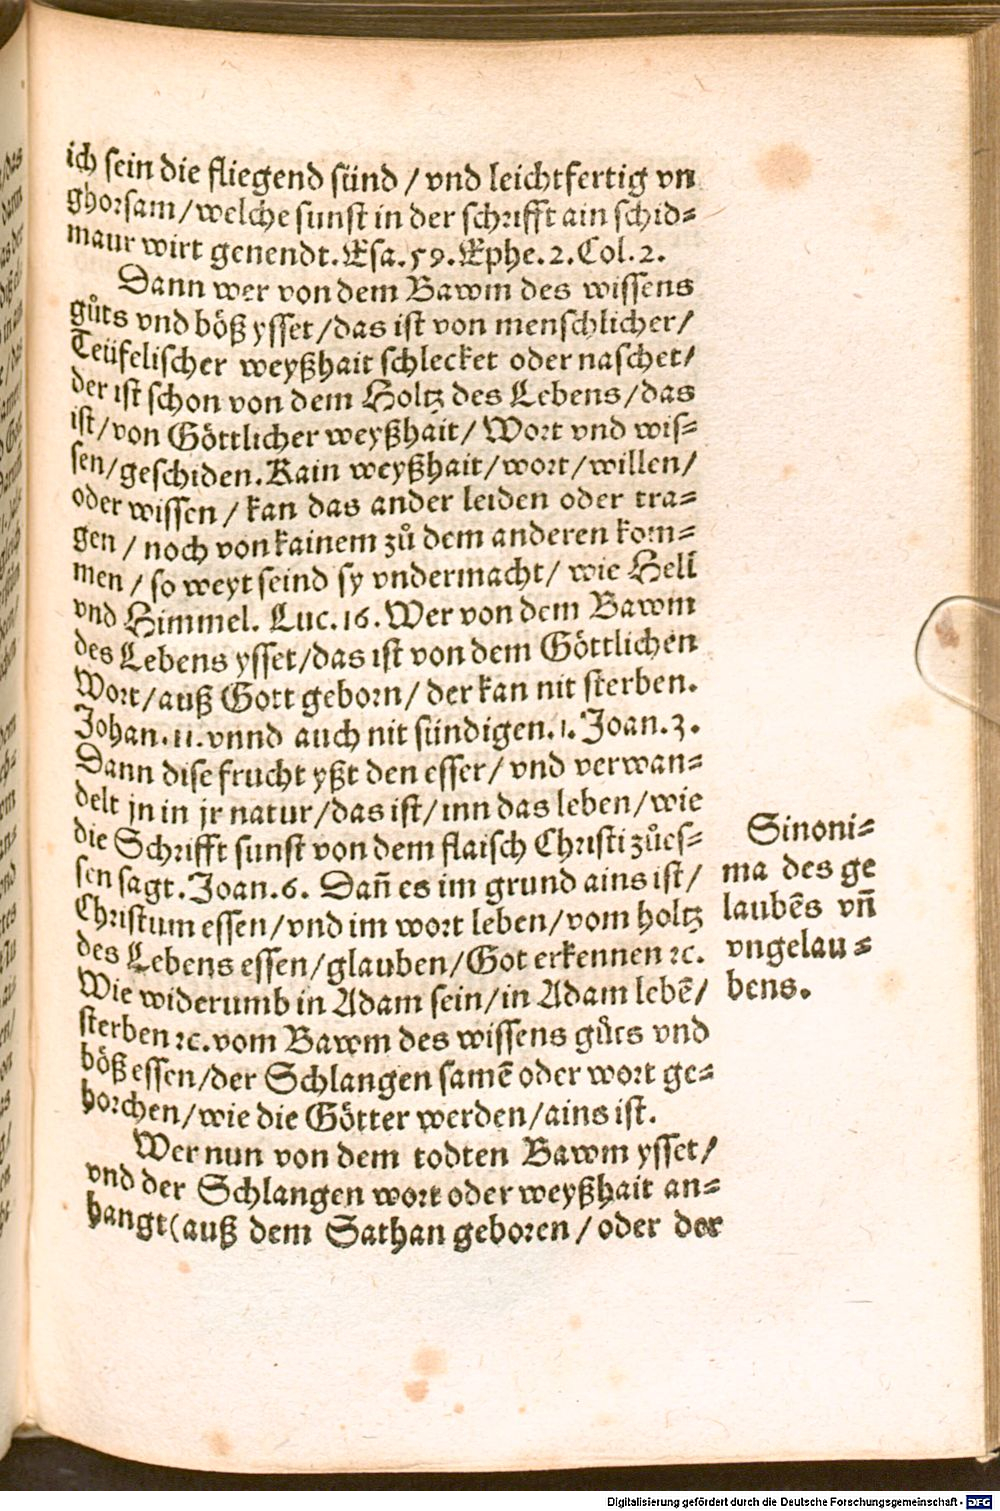 ich sein die fliegend sünd / vnd leichtfertig vn
ghorsam / welche sunst in der schrifft ain schid⸗
maur wirt genendt. Esa. 59. Ephe. 2. Col. 2.
Dann wer von dem Bawm des wissens
gůts vnd böß ysset / das ist von menschlicher /
Teüfelischer weyßhait schlecket oder naschet /
der ist schon von dem Holtz des Lebens / das
ist / von Göttlicher weyßhait / Wort vnd wis⸗
sen / geschiden. Kain weyßhait / wort / willen /
oder wissen / kan das ander leiden oder tra⸗
gen / noch von kainem zů dem anderen kom⸗
men / so weyt seind sy vndermacht / wie Hell
vnd Himmel. Luc. 16. Wer von dem Bawm
des Lebens ysset / das ist von dem Göttlichen
Wort / auß Gott geborn / der kan nit sterben.
Johan. 11. vnnd auch nit sündigen. 1. Joan. 3.
Dann dise frucht yßt den esser / vnd verwan⸗
delt jn in jr natur / das ist / inn das leben / wie
die Schrifft sunst von dem flaisch Christi zůes⸗
sen sagt. Joan. 6. Dañ es im grund ains ist /
Christum essen / vnd im wort leben / vom holtz
des Lebens essen / glauben / Got erkennen ꝛc.
Wie widerumb in Adam sein / in Adam lebē /
sterben ꝛc. vom Bawm des wissens gůts vnd
böß essen / der Schlangen samē oder wort ge⸗
horchen / wie die Götter werden / ains ist.
Wer nun von dem todten Bawm ysset /
vnd der Schlangen wort oder weyßhait an⸗
hangt (auß dem Sathan geboren / oder der
Sinoni⸗
ma des ge
laubēs vñ
vngelau⸗
bens.
Digitalisierung gefördert durch die Deutsche Forschungsgemeinschaft - DFG